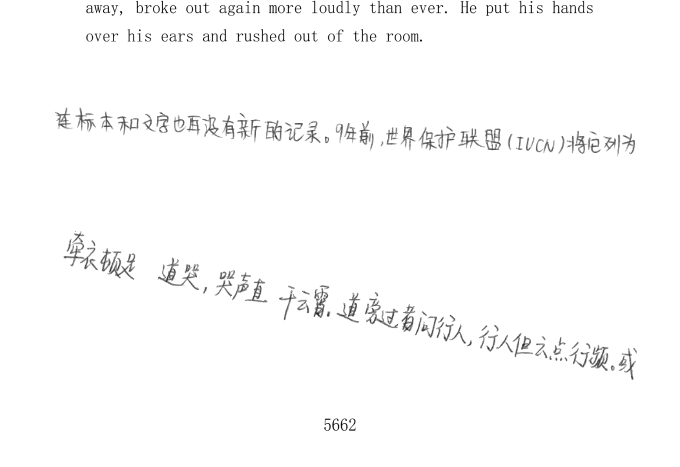 away, broke out again more loudly than ever. He put his hands
over his ears and rushed out of the room.
连标本和文字也再没有新的记录。9年前,世界保护联盟(IUCN)将它列为
牵衣顿足 道哭,哭声直 干云霄。道旁过者问行人,行人但云点行频。或
5662